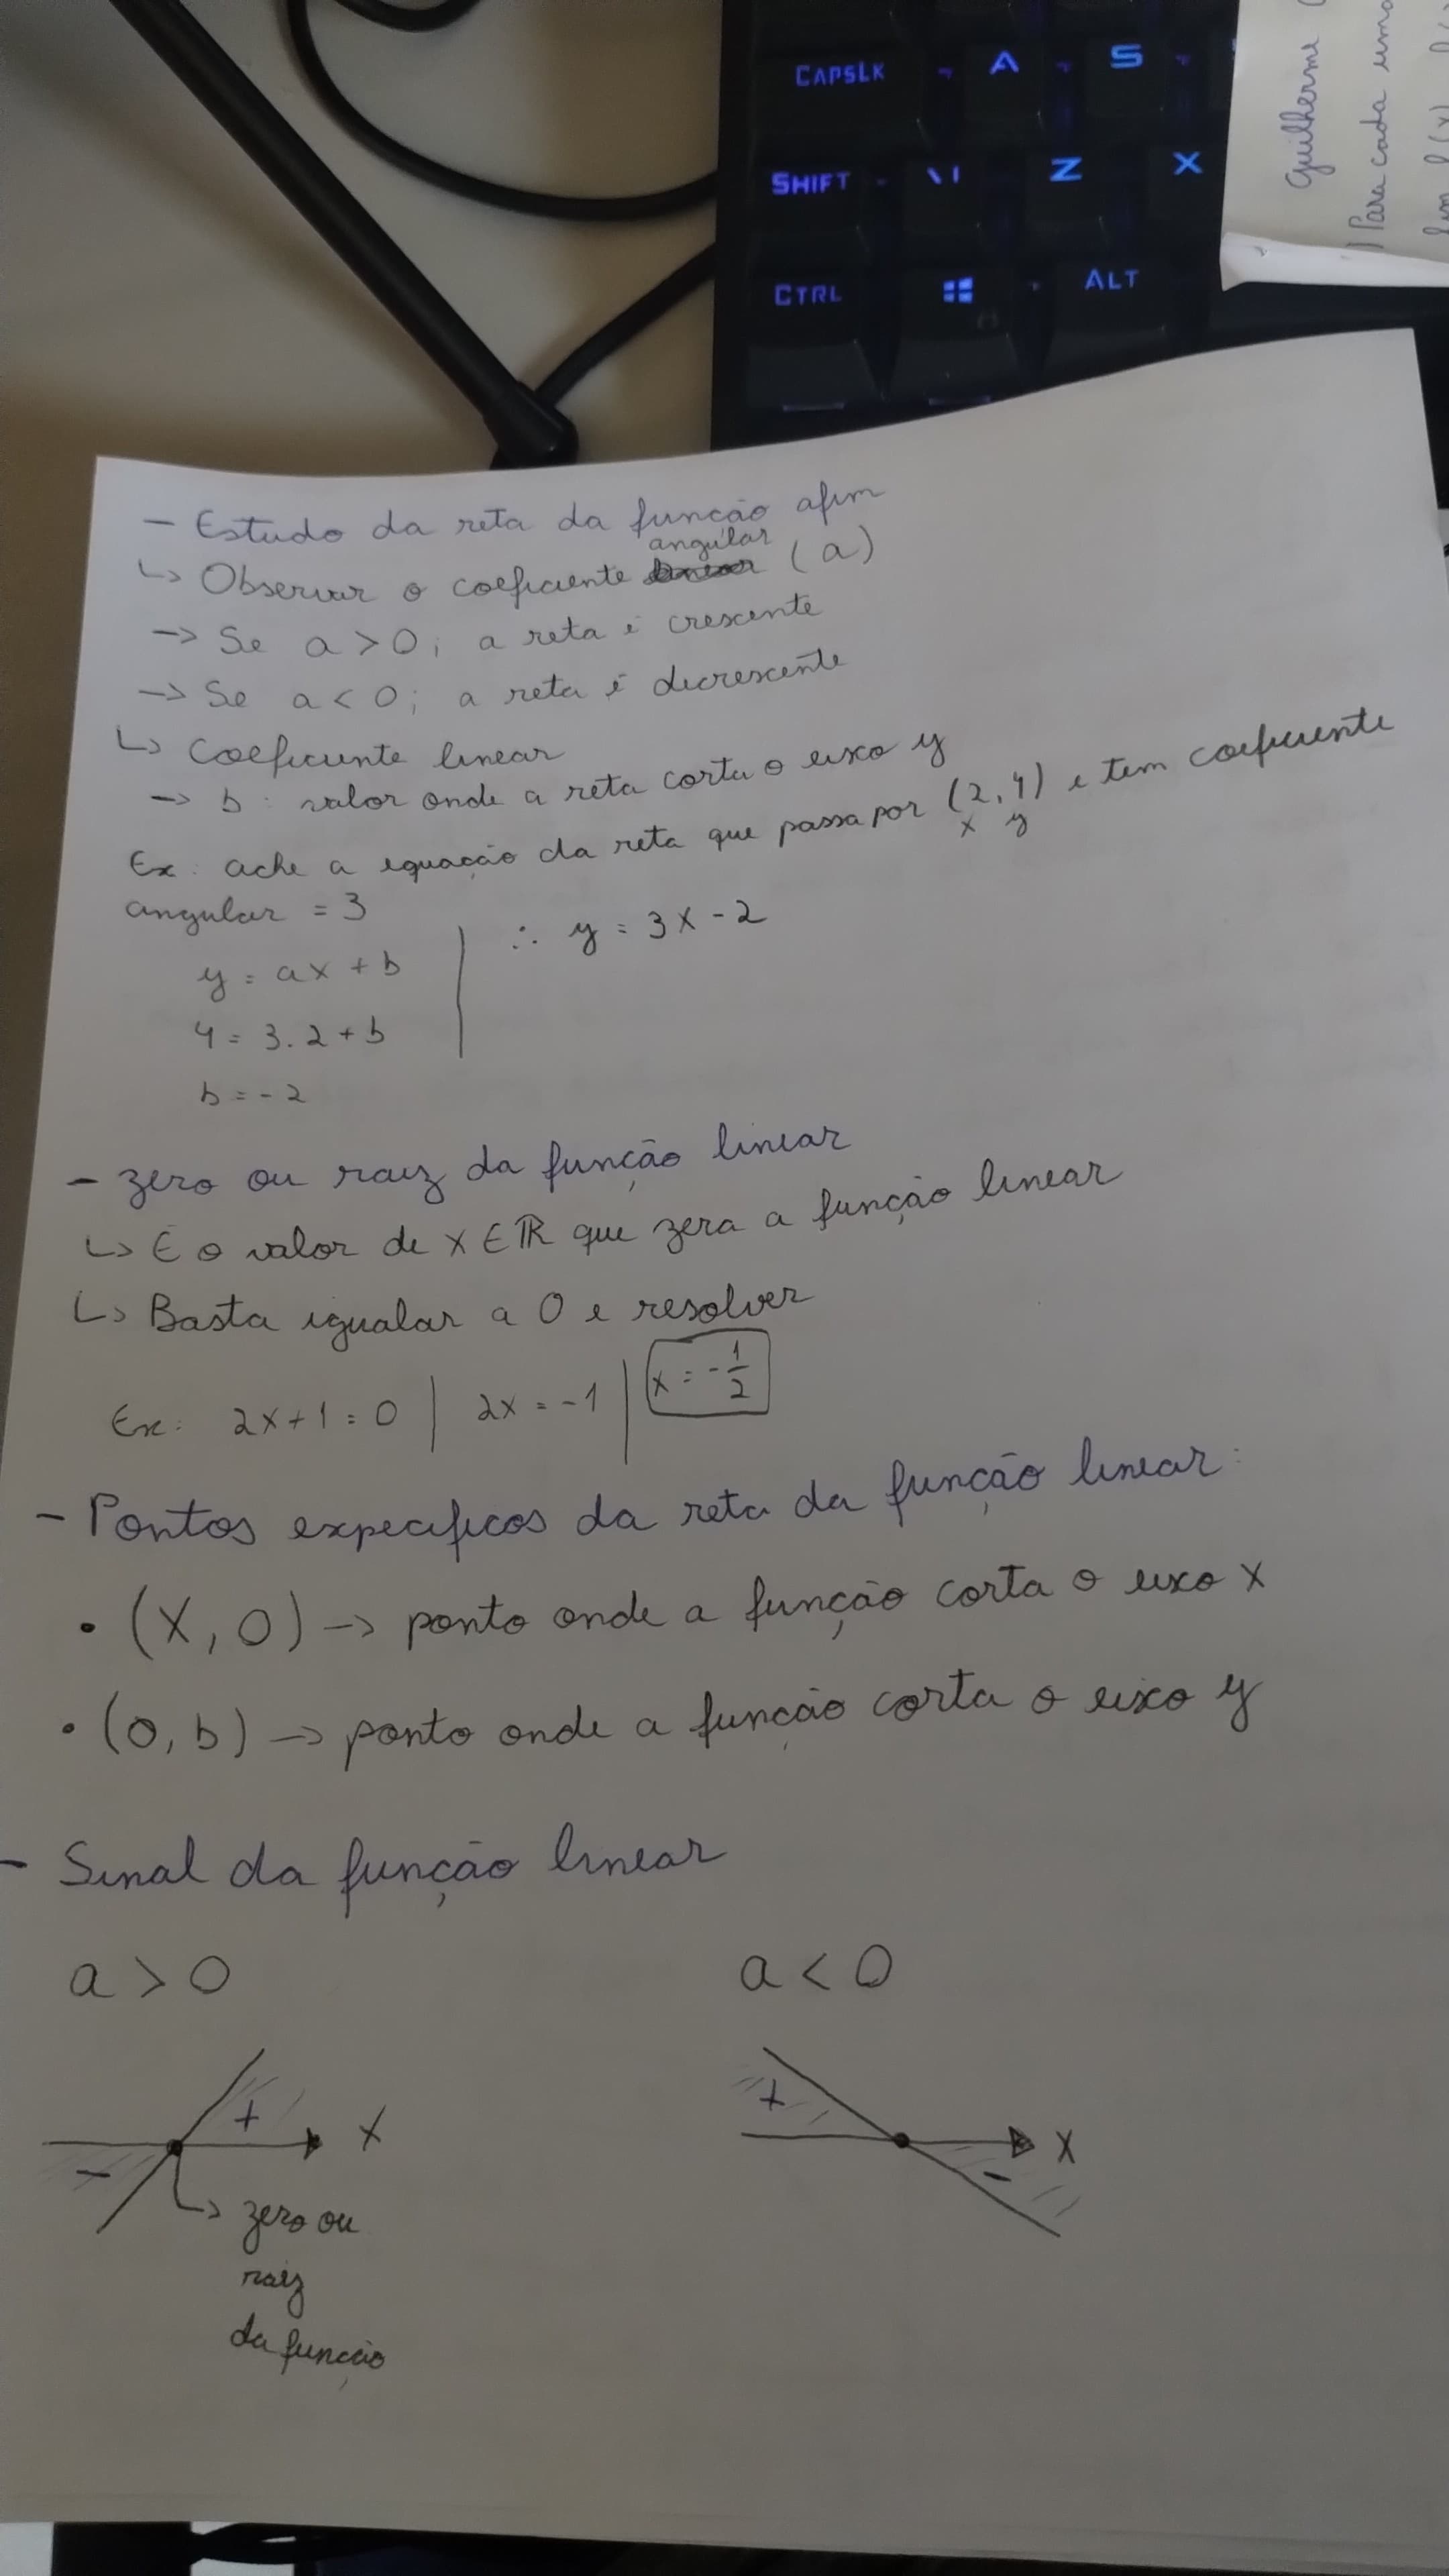 CAPSLK A S
SHIFT \| Z X
CTRL ALT
Guilherme
Para cada uma
- Estudo da reta da função afim
↳ Observar o coeficiente angular (a)
-> Se a > 0; a reta é crescente
-> Se a < 0; a reta é decrescente
↳ Coeficiente linear
-> b: valor onde a reta corta o eixo y
Ex: ache a equação da reta que passa por (2,4) e tem coeficiente
x y
angular = 3
y = ax + b
∴ y = 3x - 2
4 = 3.2 + b
b = -2
- zero ou raiz da função linear
↳ É o valor de x ∈ ℝ que zera a função linear
↳ Basta igualar a 0 e resolver
Ex: 2x + 1 = 0 | 2x = -1 | x = -1/2
- Pontos expecíficos da reta da função linear:
• (X, 0) -> ponto onde a função corta o eixo x
• (0, b) -> ponto onde a função corta o eixo y
- Sinal da função linear
a > 0 a < 0
+ X + X
- -
zero ou
raiz
da função